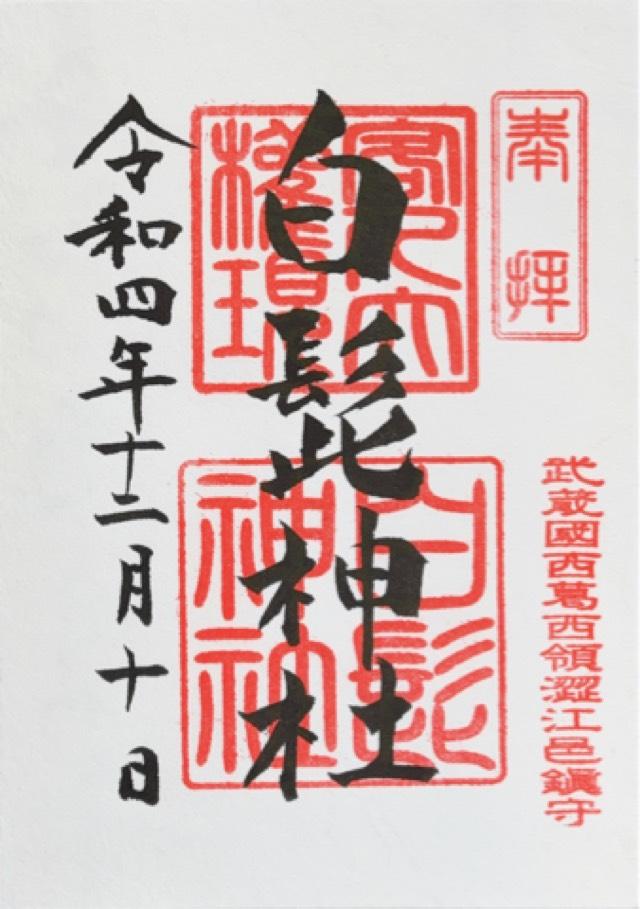 奉拝
武蔵國西葛西領澀江邑鎭守
白髭神社
客人大権現
白髭神社
令和四年十二月十日